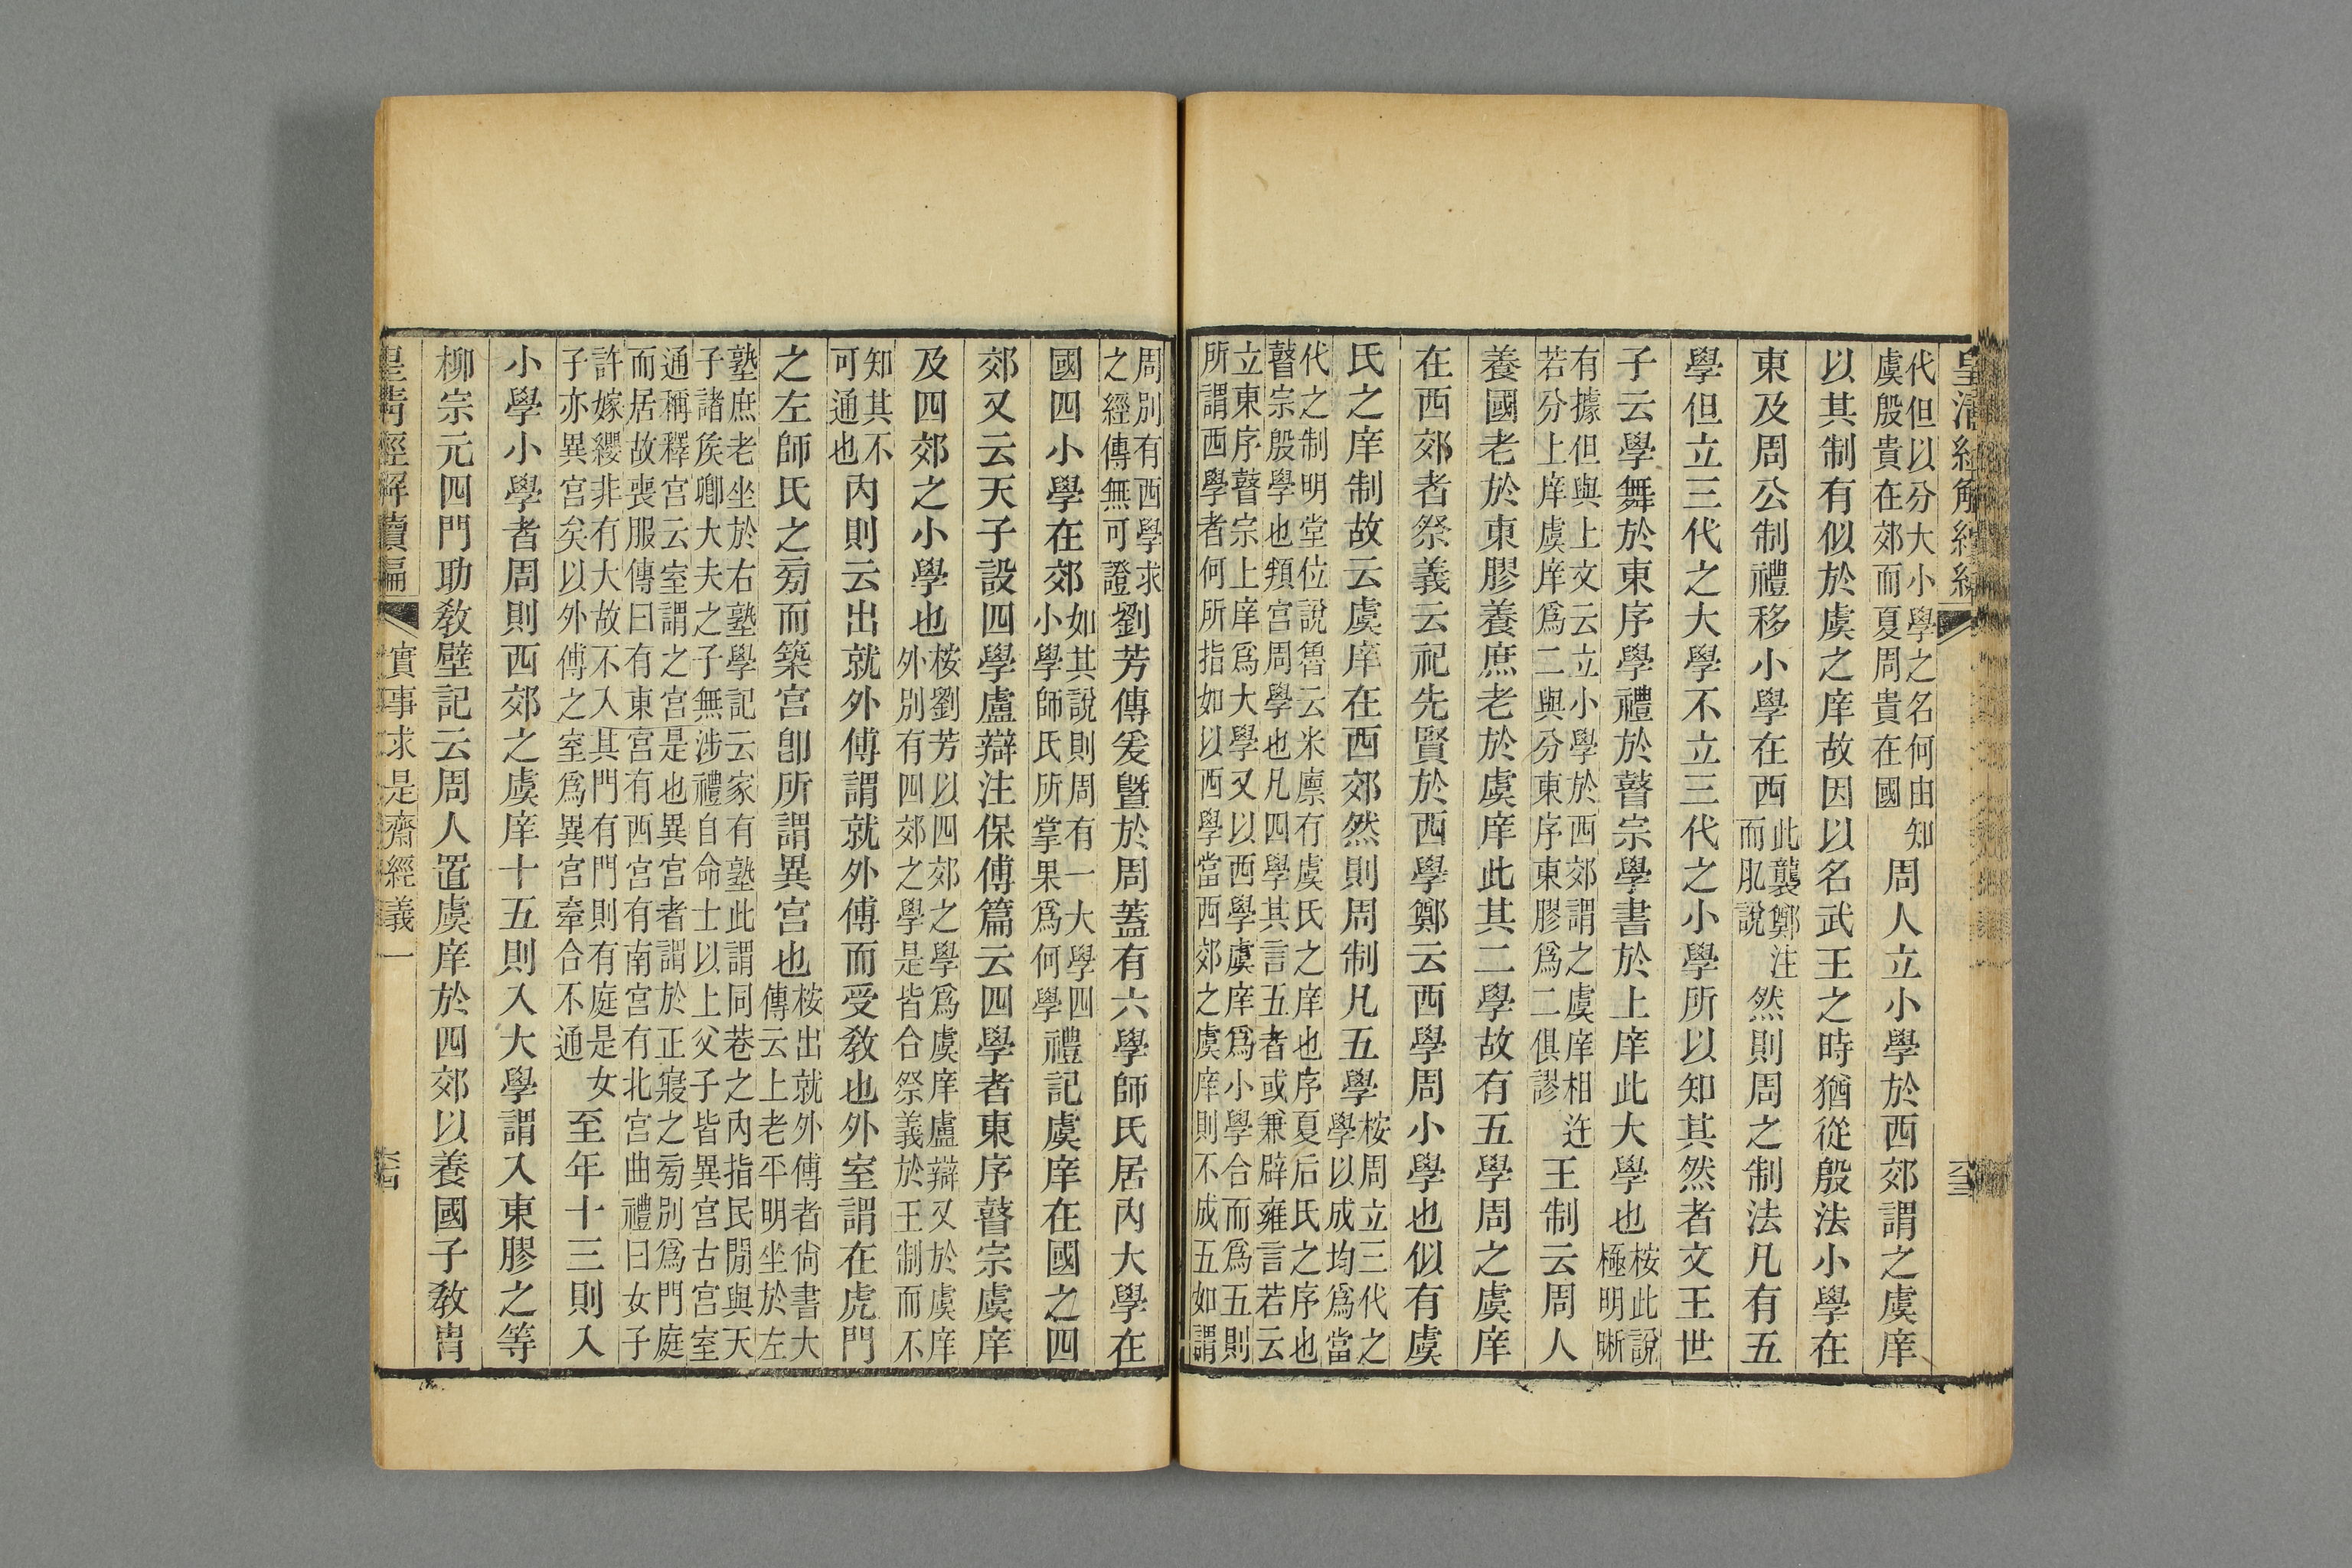 皇清經解
代但以分大小學之名何由知
虞殷貴在郊而夏周貴在國
周人立小學於西郊謂之虞庠
以其制有似於虞之庠故因以名武王之時猶從殷法小學在
東及周公制禮移小學在西
此襲鄭注
而肊說
然則周之制法凡有五
學但立三代之大學不立三代之小學所以知其然者文王世
子云學舞於東序學禮於瞽宗學書於上庠此大學也
桉此說
極明晰
有據但與上文云立小學於西郊謂之虞庠相迕
若分上庠虞庠爲二與分東序東膠爲二俱謬
王制云周人
養國老於東膠養庶老於虞庠此其二學故有五學周之虞庠
在西郊者祭義云祀先賢於西學鄭云西學周小學也似有虞
氏之庠制故云虞庠在西郊然則周制凡五學
桉周立三代之
學以成均爲當
代之制明堂位說魯云米廪有虞氏之庠也序夏后氏之序也
瞽宗殷學也頖宫周學也凡四學其言五者或兼辟雍言若云
立東序瞽宗上庠爲大學又以西學虞庠爲小學合而爲五則
所謂西學者何所指如以西學當西郊之虞庠則不成五如謂
周別有西學求
之經傳無可證
劉芳傳爰曁於周蓋有六學師氏居内大學在
國四小學在郊
如其說則周有一大學四
小學師氏所掌果爲何學
禮記虞庠在國之四
郊又云天子設四學盧辯注保傅篇云四學者東序瞽宗虞庠
及四郊之小學也
桉劉芳以四郊之學爲虞庠盧辯又於虞庠
外別有四郊之學是皆合祭義於王制而不
知其不
可通也
内則云出就外傅謂就外傅而受敎也外室謂在虎門
之左師氏之旁而築宫卽所謂異宫也
桉出就外傅者尙書大
傳云上老平明坐於左
塾庶老坐於右塾學記云家有塾此謂同巷之内指民閒與天
子諸矦卿大夫之子無涉禮自命士以上父子皆異宫古宫室
通稱釋宫云室謂之宫是也異宫者謂於正寢之旁別爲門庭
而居故喪服傳曰有東宫有西宫有南宫有北宫曲禮曰女子
許嫁纓非有大故不入其門有門則有庭是女
子亦異宫矣以外傅之室爲異宫牽合不通
至年十三則入
小學小學者周則西郊之虞庠十五則入大學謂入東膠之等
柳宗元四門助敎壁記云周人置虞庠於四郊以養國子敎胄
皇清經解續編
實事求是齋經義一